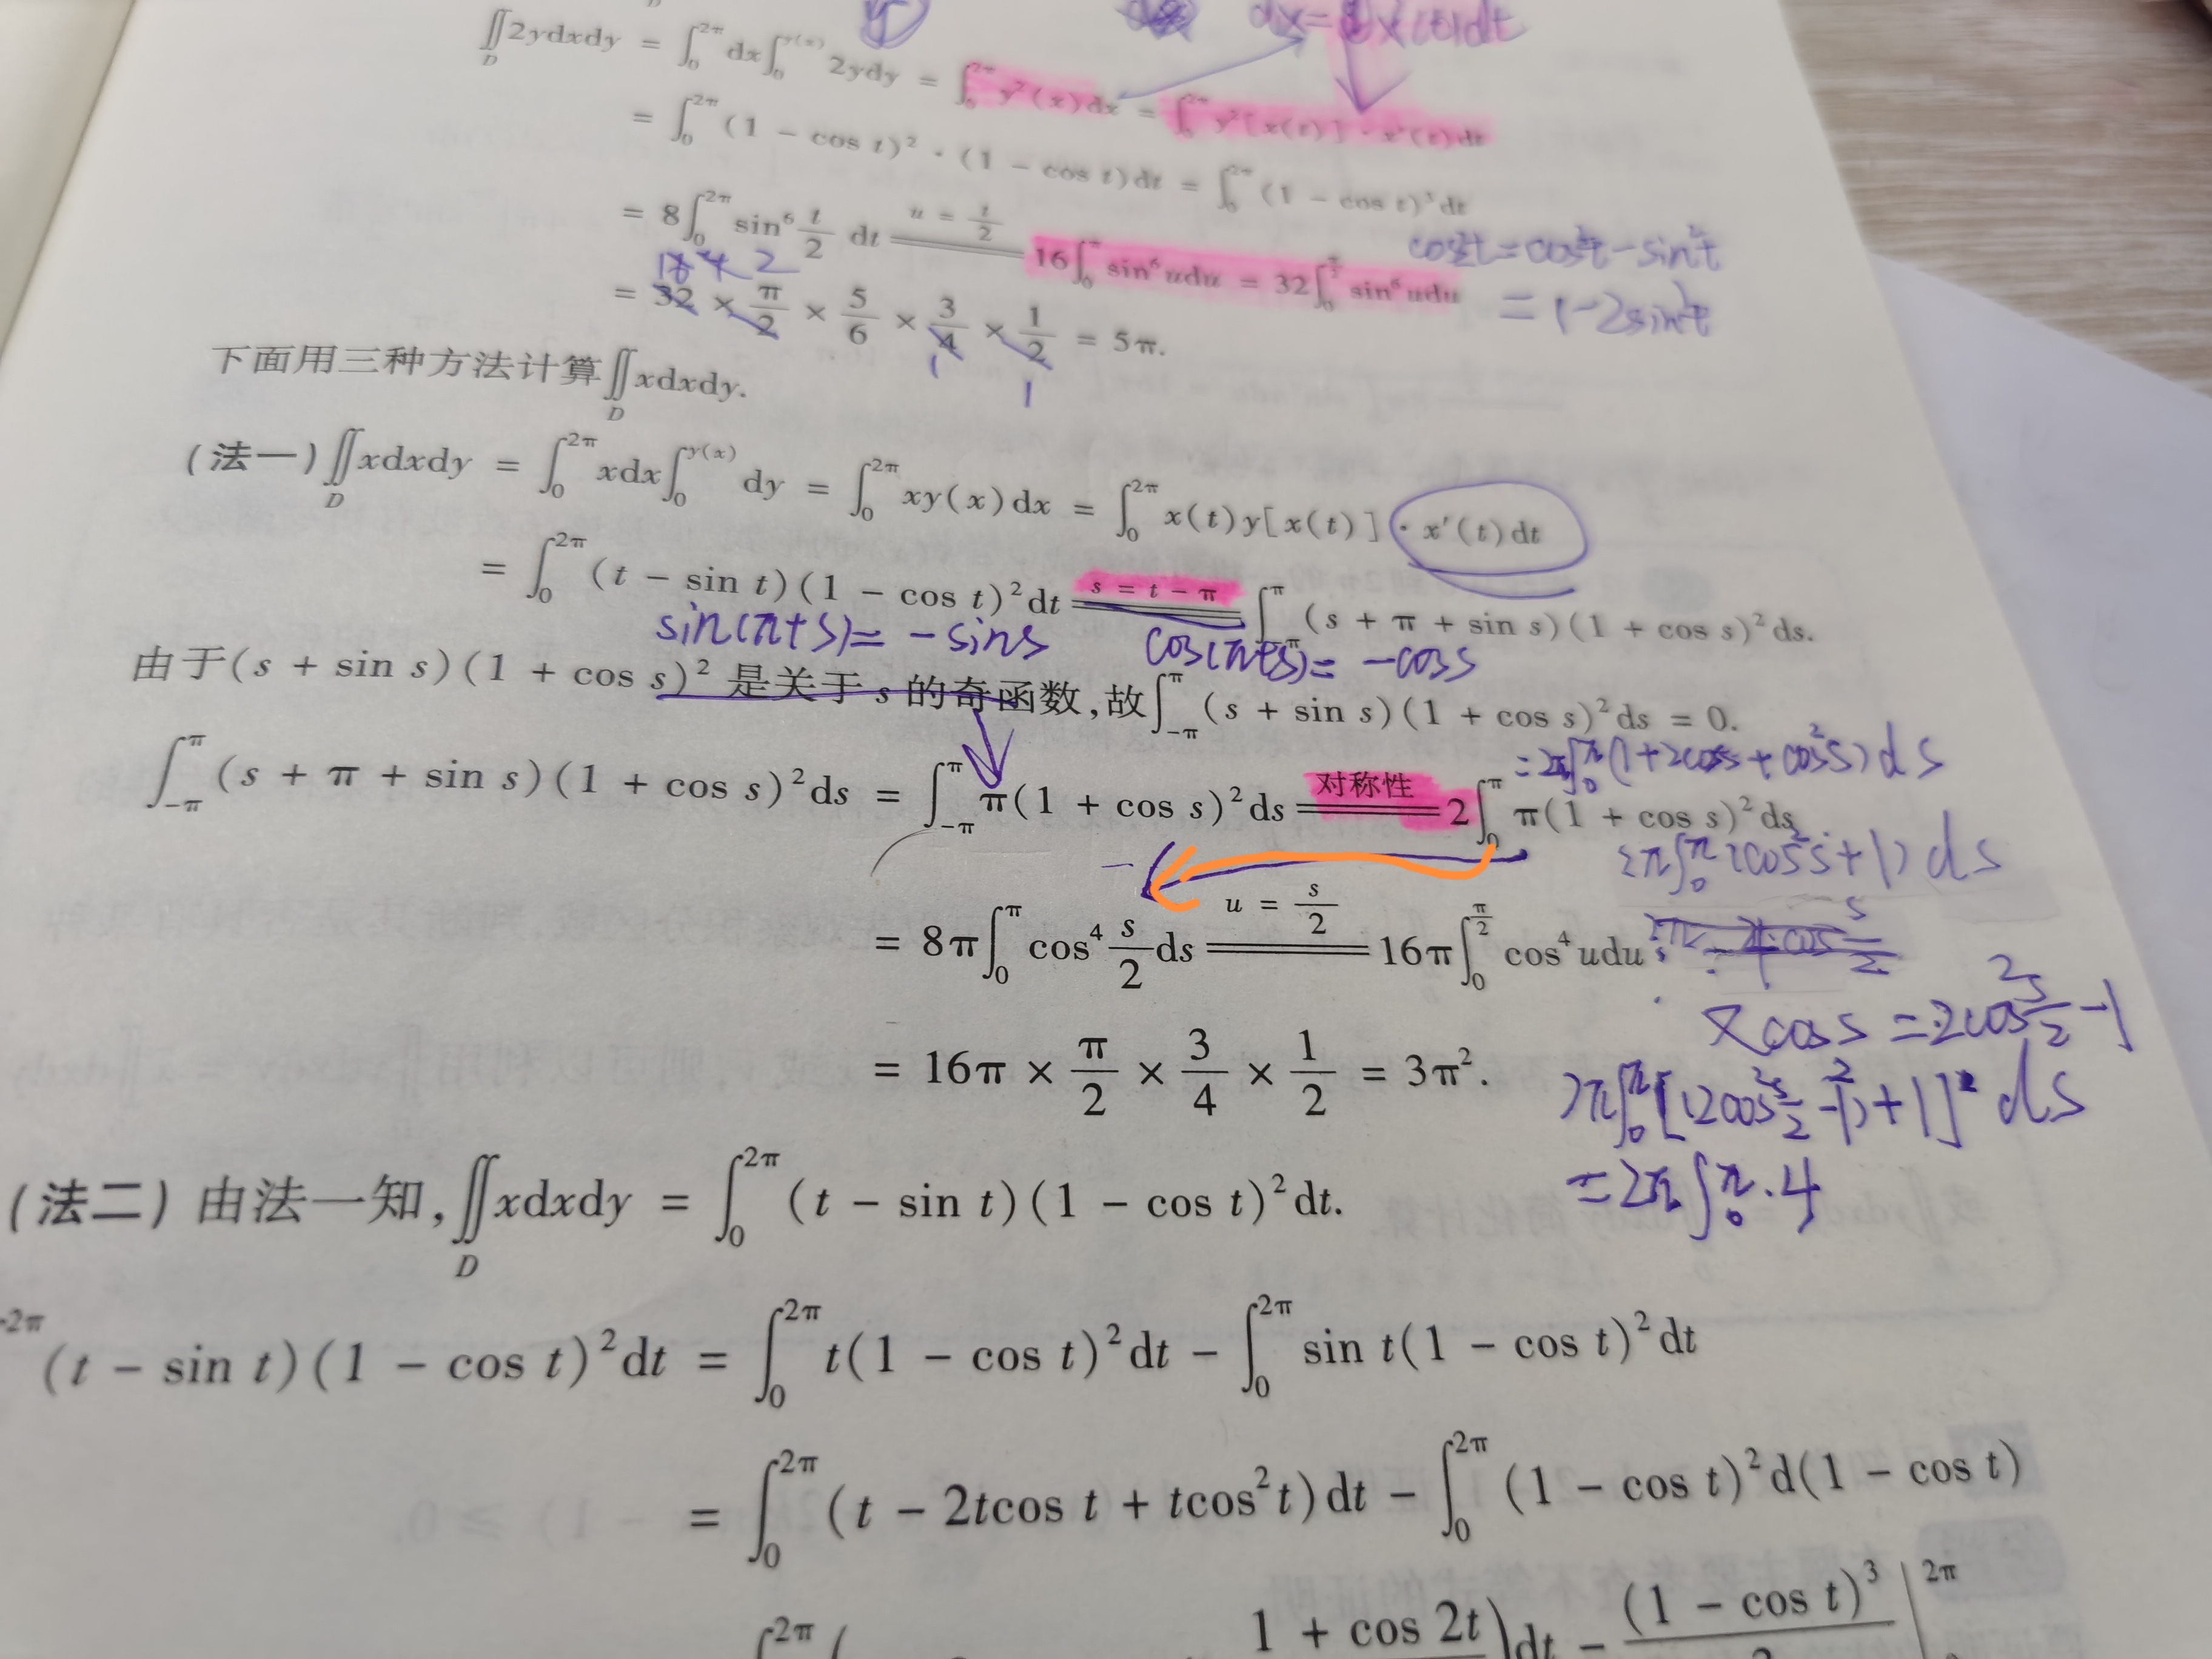 dx = x'(t)dt
∬_D 2ydxdy = ∫_0^{2π} dx ∫_0^{y(x)} 2ydy = ∫_0^{2π} y²(x)dx = ∫_0^{2π} y²[x(t)] · x'(t)dt
= ∫_0^{2π} (1 − cos t)² · (1 − cos t)dt = ∫_0^{2π} (1 − cos t)³dt
= 8∫_0^{2π} sin⁶ t/2 dt ══(u = t/2)══ 16∫_0^π sin⁶ udu = 32∫_0^{π/2} sin⁶ udu
cos2t = cos²t − sin²t
= 1 − 2sin²t
= 32 × π/2 × 5/6 × 3/4 × 1/2 = 5π.
下面用三种方法计算∬_D xdxdy.
(法一)∬_D xdxdy = ∫_0^{2π} xdx ∫_0^{y(x)} dy = ∫_0^{2π} xy(x)dx = ∫_0^{2π} x(t)y[x(t)] · x'(t)dt
= ∫_0^{2π} (t − sin t)(1 − cos t)²dt ══(s = t − π)══ ∫_{−π}^π (s + π + sin s)(1 + cos s)²ds.
sin(π+s) = −sins cos(π+s) = −coss
由于(s + sin s)(1 + cos s)² 是关于 s 的奇函数,故∫_{−π}^π (s + sin s)(1 + cos s)²ds = 0.
= 2π∫_0^π (1+2coss+cos²s)ds
∫_{−π}^π (s + π + sin s)(1 + cos s)²ds = ∫_{−π}^π π(1 + cos s)²ds ══(对称性)══ 2∫_0^π π(1 + cos s)²ds
= 8π∫_0^π cos⁴ s/2 ds ══(u = s/2)══ 16π∫_0^{π/2} cos⁴ udu
cos s = 2cos² s/2 − 1
= 16π × π/2 × 3/4 × 1/2 = 3π².
2π∫_0^π [(2cos² s/2 − 1)+1]² ds
= 2π∫_0^π · 4
(法二) 由法一知,∬_D xdxdy = ∫_0^{2π} (t − sin t)(1 − cos t)²dt.
(t − sin t)(1 − cos t)²dt = ∫_0^{2π} t(1 − cos t)²dt − ∫_0^{2π} sin t(1 − cos t)²dt
= ∫_0^{2π} (t − 2tcos t + tcos²t)dt − ∫_0^{2π} (1 − cos t)²d(1 − cos t)
1 + cos 2t )dt − (1 − cos t)³ |^{2π}